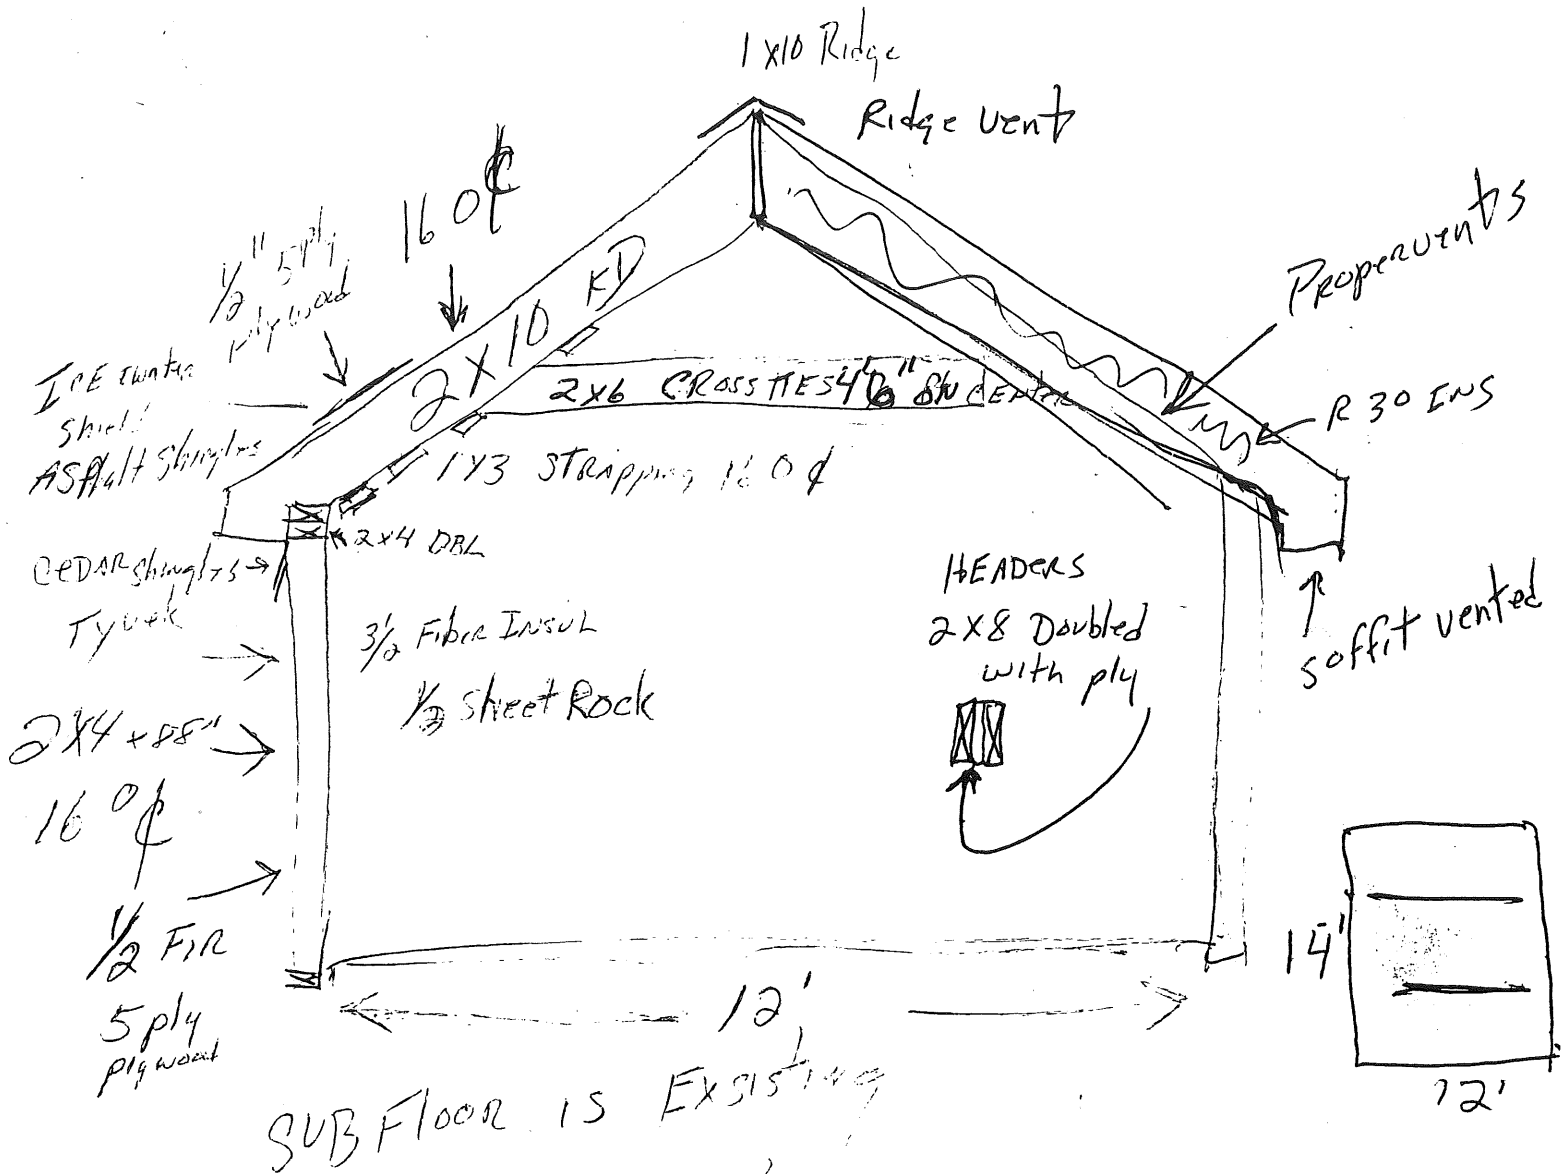 1 x10 Ridge
Ridge vent
16 O ₵
1/2" 5 ply
plywood
2 x 10 KD
Propervents
ICE & water
Shield
ASphalt Shingles
2x6 CROSSTIES ON CENTER
R 30 INS
1 x3 STRAPPING 16 O ₵
2x4 DBL
CEDAR Shingles
Tyvek
3 1/2 Fiber INSUL
1/2 Sheet Rock
HEADERS
2 X 8 Doubled
with ply
soffit vented
2x4 x 88"
16 O ₵
1/2 FIR
5 ply
plywood
12'
14'
12'
SUB Floor is Exsisting